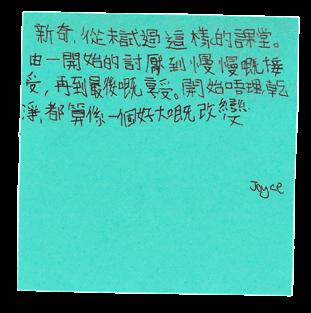 新奇，從未試過這樣的課堂。
由一開始的討厭到慢慢嘅接
受，再到最後嘅享受。開始唔理乾
淨，都算係一個好大嘅改變
Joyce